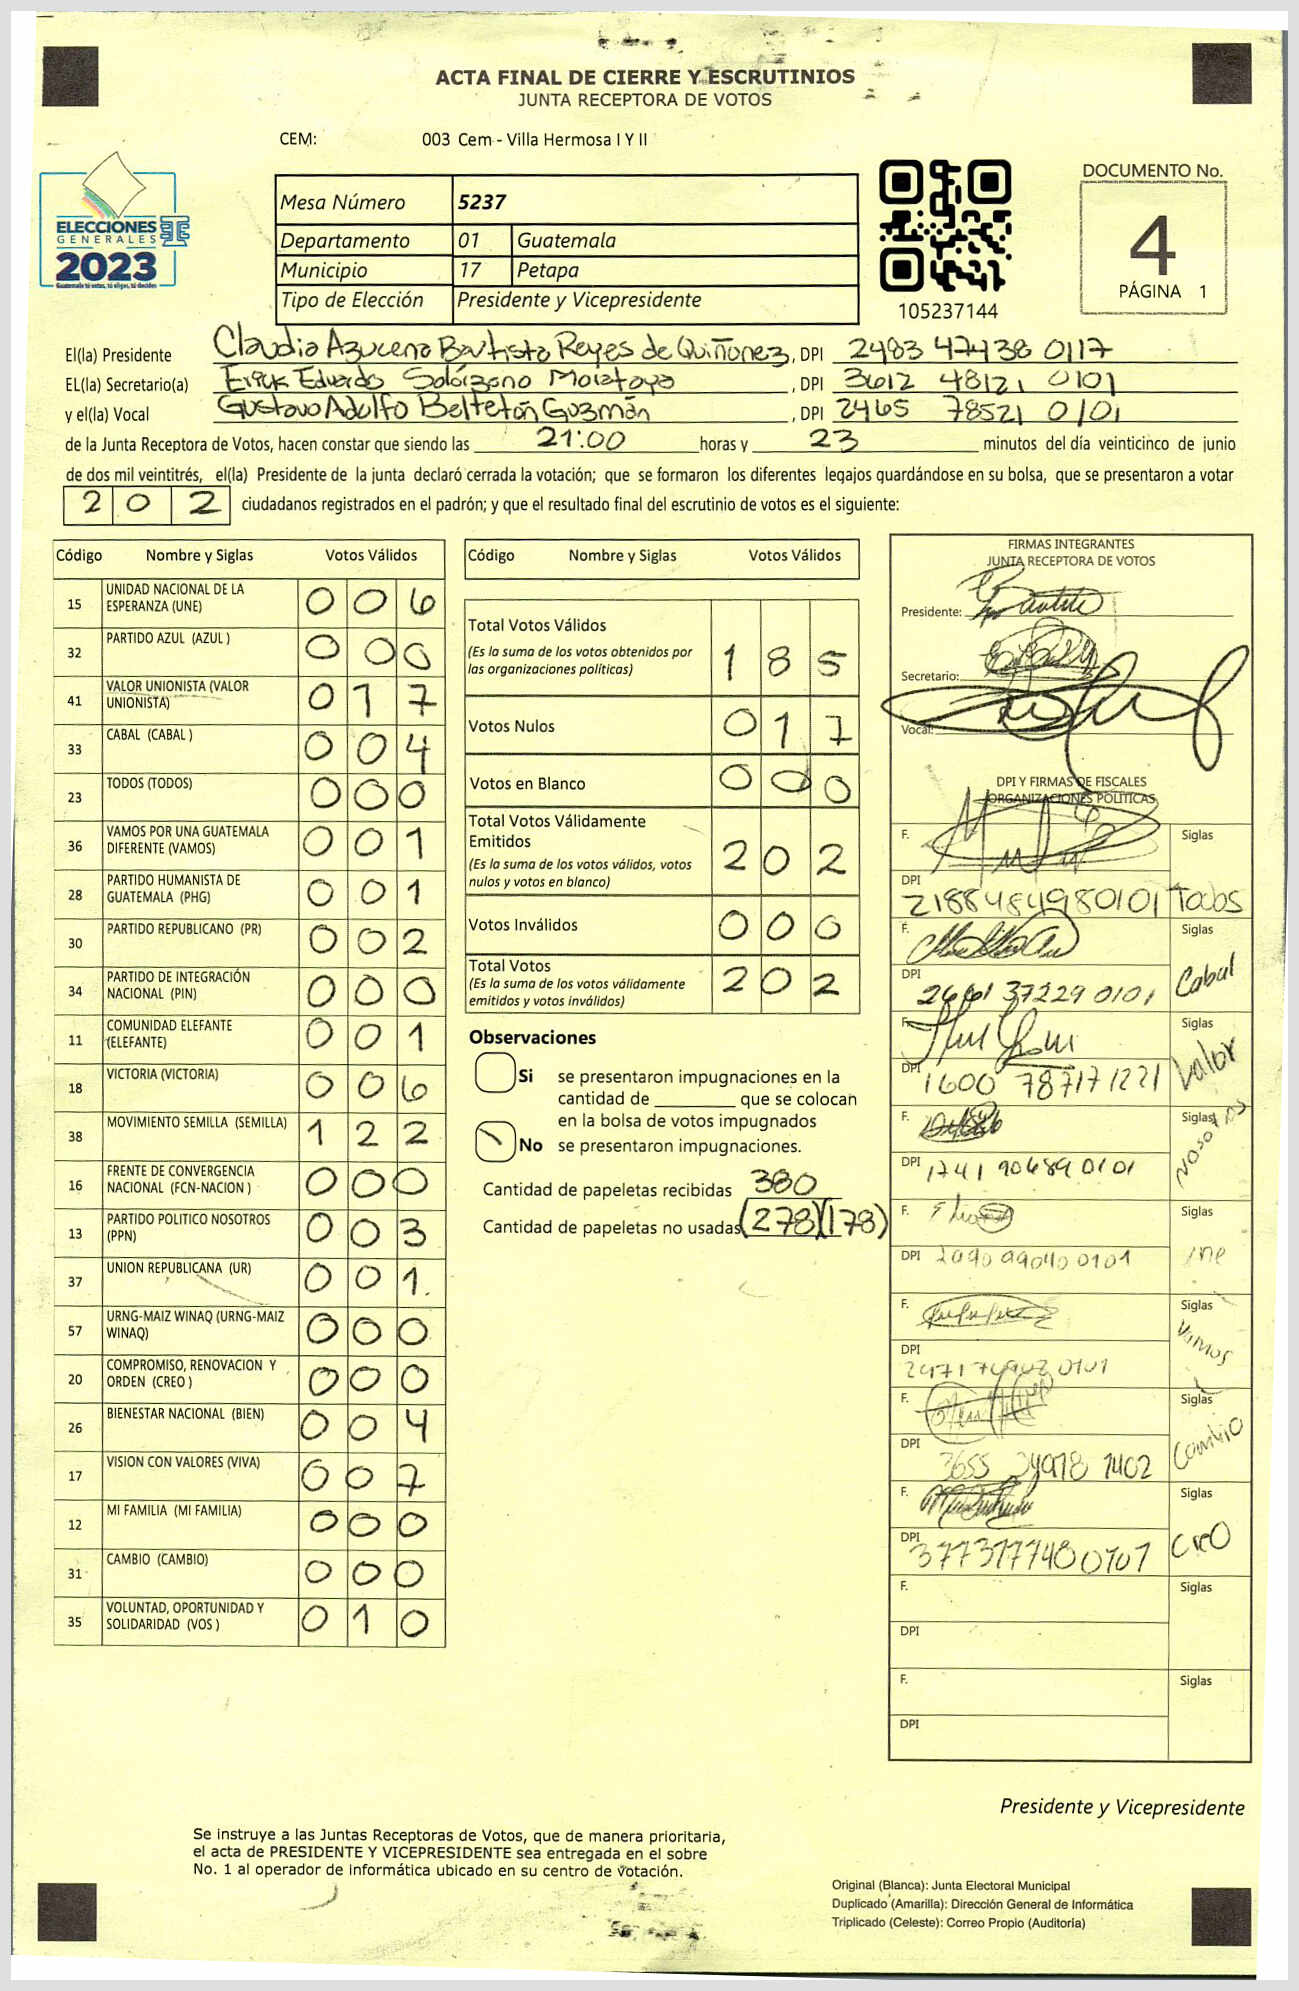 ACTA FINAL DE CIERRE Y ESCRUTINIOS
JUNTA RECEPTORA DE VOTOS
CEM: 003 Cem - Villa Hermosa I Y II
ELECCIONES
GENERALES
2023
Guatemala tú votas, tú eliges, tú decides
Mesa Número 5237
Departamento 01 Guatemala
Municipio 17 Petapa
Tipo de Elección Presidente y Vicepresidente
105237144
DOCUMENTO No.
4
PÁGINA 1
El(la) Presidente Claudia Azucena Bautista Reyes de Quiñonez, DPI 2483 47438 0117
EL(la) Secretario(a) Erick Eduardo Solórzano , DPI 3612 48121 0101
y el(la) Vocal Gustavo Adolfo Beltetón Guzmán , DPI 2465 78521 0101
de la Junta Receptora de Votos, hacen constar que siendo las 21:00 horas y 23 minutos del día veinticinco de junio
de dos mil veintitrés, el(la) Presidente de la junta declaró cerrada la votación; que se formaron los diferentes legajos guardándose en su bolsa, que se presentaron a votar
202 ciudadanos registrados en el padrón; y que el resultado final del escrutinio de votos es el siguiente:
Código Nombre y Siglas Votos Válidos
15 UNIDAD NACIONAL DE LA ESPERANZA (UNE) 0 0 6
32 PARTIDO AZUL (AZUL ) 0 0 0
41 VALOR UNIONISTA (VALOR UNIONISTA) 0 1 7
33 CABAL (CABAL ) 0 0 4
23 TODOS (TODOS) 0 0 0
36 VAMOS POR UNA GUATEMALA DIFERENTE (VAMOS) 0 0 1
28 PARTIDO HUMANISTA DE GUATEMALA (PHG) 0 0 1
30 PARTIDO REPUBLICANO (PR) 0 0 2
34 PARTIDO DE INTEGRACIÓN NACIONAL (PIN) 0 0 0
11 COMUNIDAD ELEFANTE (ELEFANTE) 0 0 1
18 VICTORIA (VICTORIA) 0 0 6
38 MOVIMIENTO SEMILLA (SEMILLA) 1 2 2
16 FRENTE DE CONVERGENCIA NACIONAL (FCN-NACION ) 0 0 0
13 PARTIDO POLITICO NOSOTROS (PPN) 0 0 3
37 UNION REPUBLICANA (UR) 0 0 1.
57 URNG-MAIZ WINAQ (URNG-MAIZ WINAQ) 0 0 0
20 COMPROMISO, RENOVACION Y ORDEN (CREO ) 0 0 0
26 BIENESTAR NACIONAL (BIEN) 0 0 4
17 VISION CON VALORES (VIVA) 0 0 7
12 MI FAMILIA (MI FAMILIA) 0 0 0
31 CAMBIO (CAMBIO) 0 0 0
35 VOLUNTAD, OPORTUNIDAD Y SOLIDARIDAD (VOS ) 0 1 0
Código Nombre y Siglas Votos Válidos
Total Votos Válidos 1 8 5
(Es la suma de los votos obtenidos por
las organizaciones políticas)
Votos Nulos 0 1 7
Votos en Blanco 0 0 0
Total Votos Válidamente
Emitidos 2 0 2
(Es la suma de los votos válidos, votos
nulos y votos en blanco)
Votos Inválidos 0 0 0
Total Votos 2 0 2
(Es la suma de los votos válidamente
emitidos y votos inválidos)
Observaciones
Si se presentaron impugnaciones en la
cantidad de ________ que se colocan
en la bolsa de votos impugnados
No se presentaron impugnaciones.
Cantidad de papeletas recibidas 380
Cantidad de papeletas no usadas (278)(178)
FIRMAS INTEGRANTES
JUNTA RECEPTORA DE VOTOS
Presidente:
Secretario:
Vocal:
DPI Y FIRMAS DE FISCALES
ORGANIZACIONES POLÍTICAS
F. Siglas
DPI 2188484980101 Todos
F. Siglas
DPI 2661 37229 0101 Cabal
F. Siglas
DPI 1600 787171221 Valor
F. Siglas
DPI 1741 90689 0101 Nosotros
F. Siglas
DPI 2090 99040 0101 une
F. Siglas
DPI 0101 Vamos
F. Siglas
DPI 3655 1402 Cambio
F. Siglas
DPI 3773177480101 CreO
F. Siglas
DPI
F. Siglas
DPI
Presidente y Vicepresidente
Se instruye a las Juntas Receptoras de Votos, que de manera prioritaria,
el acta de PRESIDENTE Y VICEPRESIDENTE sea entregada en el sobre
No. 1 al operador de informática ubicado en su centro de votación.
Original (Blanca): Junta Electoral Municipal
Duplicado (Amarilla): Dirección General de Informática
Triplicado (Celeste): Correo Propio (Auditoría)